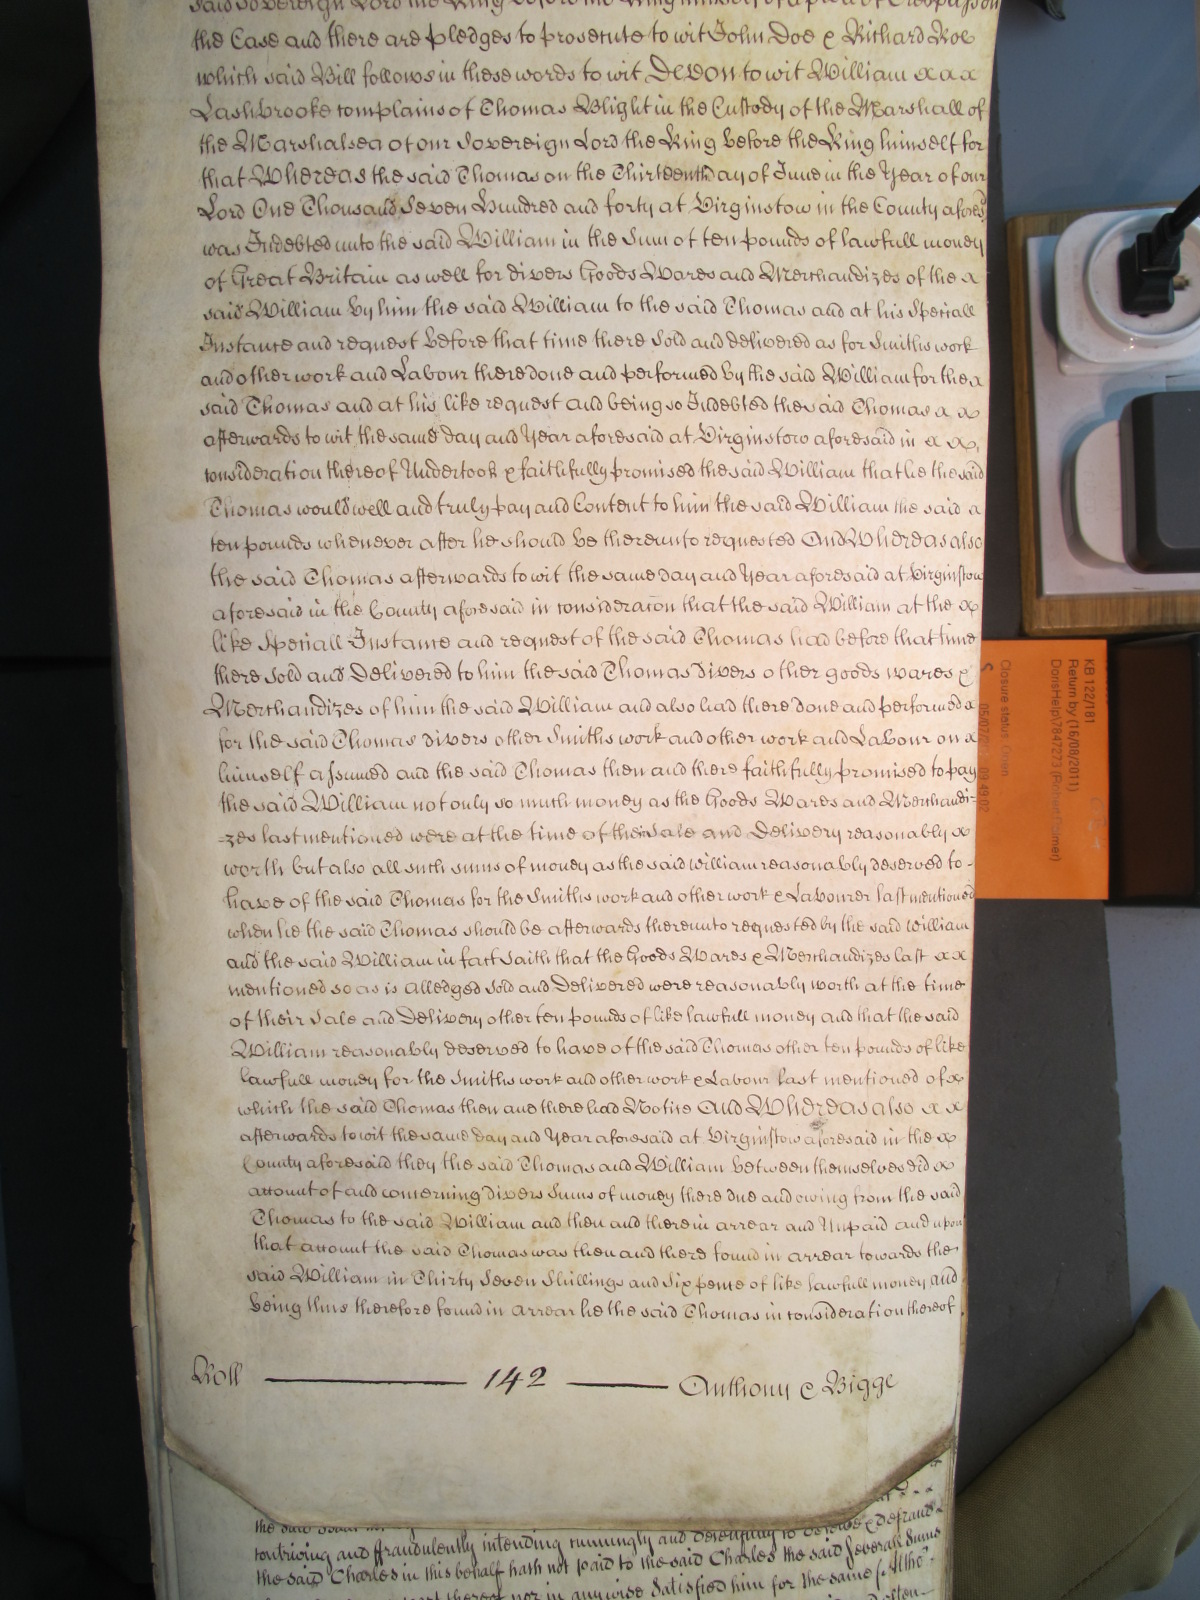 said Sovereign Lord the King before the King himself of a plea of Trespass on
the Case and there are pledges to prosecute to wit John Doe & Richard Roe
which said Bill follows in these words to wit Devon to wit William x x x
Lashbrooke complains of Thomas Blight in the Custody of the Marshall of
the Marshalsea of our Sovereign Lord the King before the King himself for
that Whereas the said Thomas on the Thirteenth Day of June in the Year of our
Lord One Thousand Seven Hundred and forty at Virginstow in the County afores:d
was Indebted unto the said William in the Sum of ten pounds of lawfull money
of Great Britain as well for divers Goods Wares and Merchandizes of the x
said William by him the said William to the said Thomas and at his Speciall
Instance and request before that time there Sold and delivered as for Smiths work
and other work and Labour there done and performed by the said William for the x
said Thomas and at his like request and being so Indebted the said Thomas x x
afterwards to wit the same day and Year aforesaid at Virginstow aforesaid in x x
consideration thereof Undertook & faithfully promised the said William that he the said
Thomas would well and truly pay and Content to him the said William the said x
ten pounds whenever after he should be thereunto requested And Whereas also
the said Thomas afterwards to wit the same day and Year aforesaid at Virginstow
aforesaid in the County aforesaid in consideracon that the said William at the x
like Speciall Instance and request of the said Thomas had before that time
there sold and Delivered to him the said Thomas divers other goods wares &
Merchandizes of him the said William and also had there done and performed x
for the said Thomas divers other Smiths work and other work and Labour on x
himself assumed and the said Thomas then and there faithfully promised to pay
the said William not only so much money as the Goods Wares and Merchandi-
-zes last mentioned were at the time of their Sale and Delivery reasonably x
worth but also all such sums of money as the said William reasonably deserved to -
have of the said Thomas for the Smiths work and other work & Labourer last mentioned
when he the said Thomas should be afterwards thereunto requested by the said William
and the said William in fact saith that the Goods Wares & Merchandizes last x x
mentioned so as is alledged Sold and Delivered were reasonably worth at the time
of their Sale and Delivery other ten pounds of like lawfull money and that the said
William reasonably deserved to have of the said Thomas other ten pounds of like
lawfull money for the Smiths work and other work & Labour last mentioned of x
which the said Thomas then and there had Notice And Whereas also x x
afterwards to wit the same day and Year aforesaid at Virginstow aforesaid in the x
County aforesaid they the said Thomas and William between themselves did x
account of and concerning divers Sums of money there due and owing from the said
Thomas to the said William and then and there in arrear and Unpaid and upon
that account the said Thomas was then and there found in arrear towards the
said William in Thirty Seven Shillings and Six pence of like lawfull money and
being thus therefore found in arrear he the said Thomas in consideration thereof
Roll 142 Anthony & Bigge
the said
contriving and fraudulently intending cunningly and & defraud
the said Charles in this behalf hath not paid to the said Charles the said Severall Sums
thereof nor in any wise Satisfied him for the same
KB 122/181
Return by (16/08/2011)
DorisHelp\7847273 (Robert Palmer)
Closure status Open
S 09:49:02